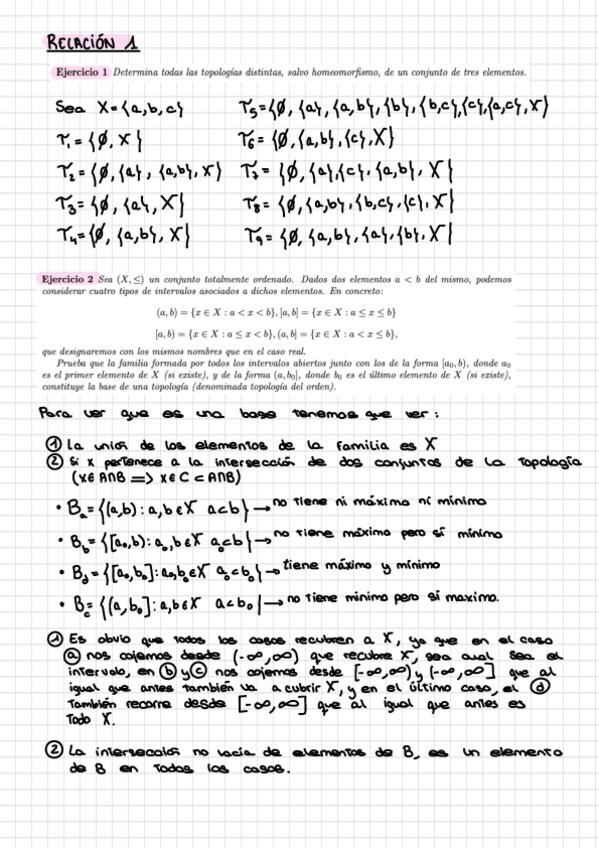 RELACIÓN 1
Ejercicio 1 Determina todas las topologías distintas, salvo homeomorfismo, de un conjunto de tres elementos.
Sea X={a,b,c}
τ₁={∅,X}
τ₂={∅,{a},{a,b},X}
τ₃={∅,{a},X}
τ₄={∅,{a,b},X}
τ₅={∅,{a},{a,b},{b},{b,c},{c},{a,c},X}
τ₆={∅,{a,b},{c},X}
τ₇={∅,{a},{c},{a,b},X}
τ₈={∅,{a,b},{b,c},{c},X}
τ₉={∅,{a,b},{a},{b},X}
Ejercicio 2 Sea (X,≤) un conjunto totalmente ordenado. Dados dos elementos a < b del mismo, podemos
considerar cuatro tipos de intervalos asociados a dichos elementos. En concreto:
(a,b) = {x ∈ X : a < x < b}, [a,b] = {x ∈ X : a ≤ x ≤ b}
[a,b) = {x ∈ X : a ≤ x < b}, (a,b] = {x ∈ X : a < x ≤ b},
que designaremos con los mismos nombres que en el caso real.
Prueba que la familia formada por todos los intervalos abiertos junto con los de la forma [a₀,b), donde a₀
es el primer elemento de X (si existe), y de la forma (a,b₀], donde b₀ es el último elemento de X (si existe),
constituye la base de una topología (denominada topología del orden).
Para ver que es una base tenemos que ver:
① La unión de los elementos de la familia es X
② Si x pertenece a la intersección de dos conjuntos de la topología
(x∈A∩B ⟹ x∈C⊂A∩B)
• Bₐ={(a,b): a,b∈X a<b} → no tiene ni máximo ni mínimo
• B_b={[a₀,b): a₀,b∈X a₀<b} → no tiene máximo pero sí mínimo
• B_d={[a₀,b₀]: a₀,b₀∈X a₀<b₀} → tiene máximo y mínimo
• B_c={(a,b₀]: a,b∈X a<b₀} → no tiene mínimo pero sí maximo.
① Es obvio que todos los casos recubren a X, ya que en el caso
ⓐ nos cojemos desde (-∞,∞) que recubre X, sea cual sea el
intervalo, en ⓑ y ⓒ nos cojemos desde [-∞,∞) y (-∞,∞] que al
igual que antes también va a cubrir X, y en el último caso, el ⓓ
También recorre desde [-∞,∞] que al igual que antes es
Todo X.
② La intersección no vacía de elementos de B, es un elemento
de B en todos los casos.